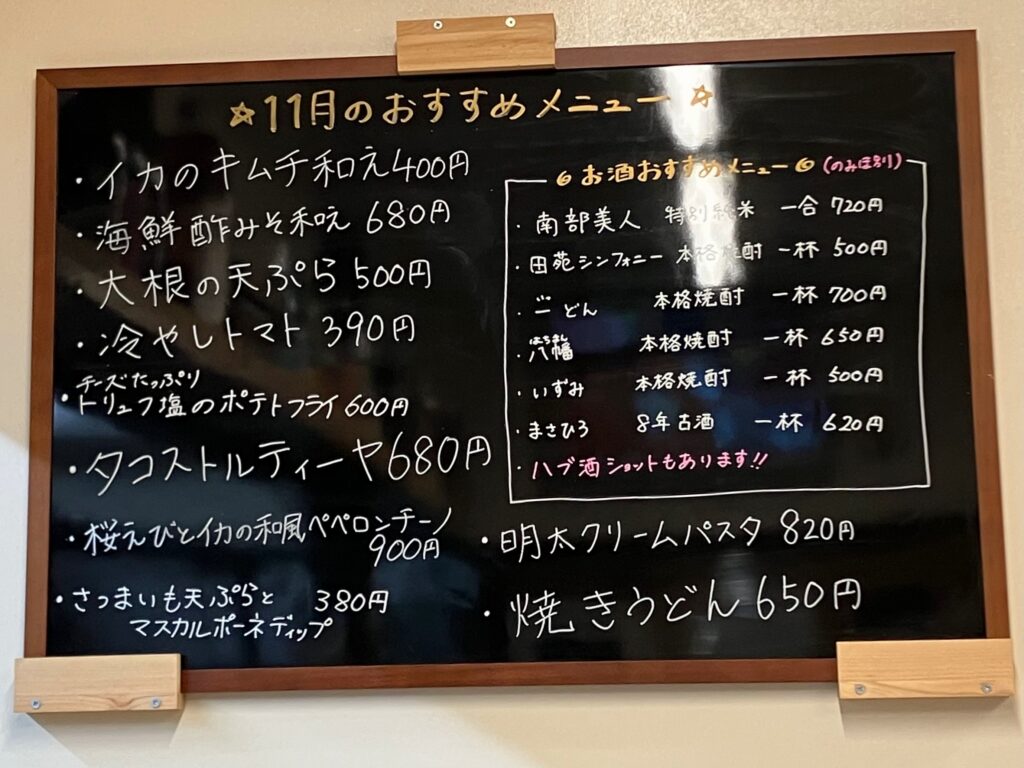 ☆11月のおすすめメニュー☆
・イカのキムチ和え400円
・海鮮酢みそ和え 680円
・大根の天ぷら 500円
・冷やしトマト 390円
チーズたっぷり
・トリュフ塩のポテトフライ 600円
・タコストルティーヤ 680円
・桜えびとイカの和風ペペロンチーノ
900円
・さつまいも天ぷらと 380円
マスカルポーネディップ
お酒おすすめメニュー (のみほ別)
・南部美人 特別純米 一合 720円
・田苑シンフォニー 本格焼酎 一杯 500円
どん 本格焼酎 一杯 700円
はちまん
・八幡 本格焼酎 一杯 650円
・いずみ 本格焼酎 一杯 500円
・まさひろ 8年古酒 一杯 620円
・ハブ酒ショットもあります!!
・明太クリームパスタ 820円
・焼きうどん 650円